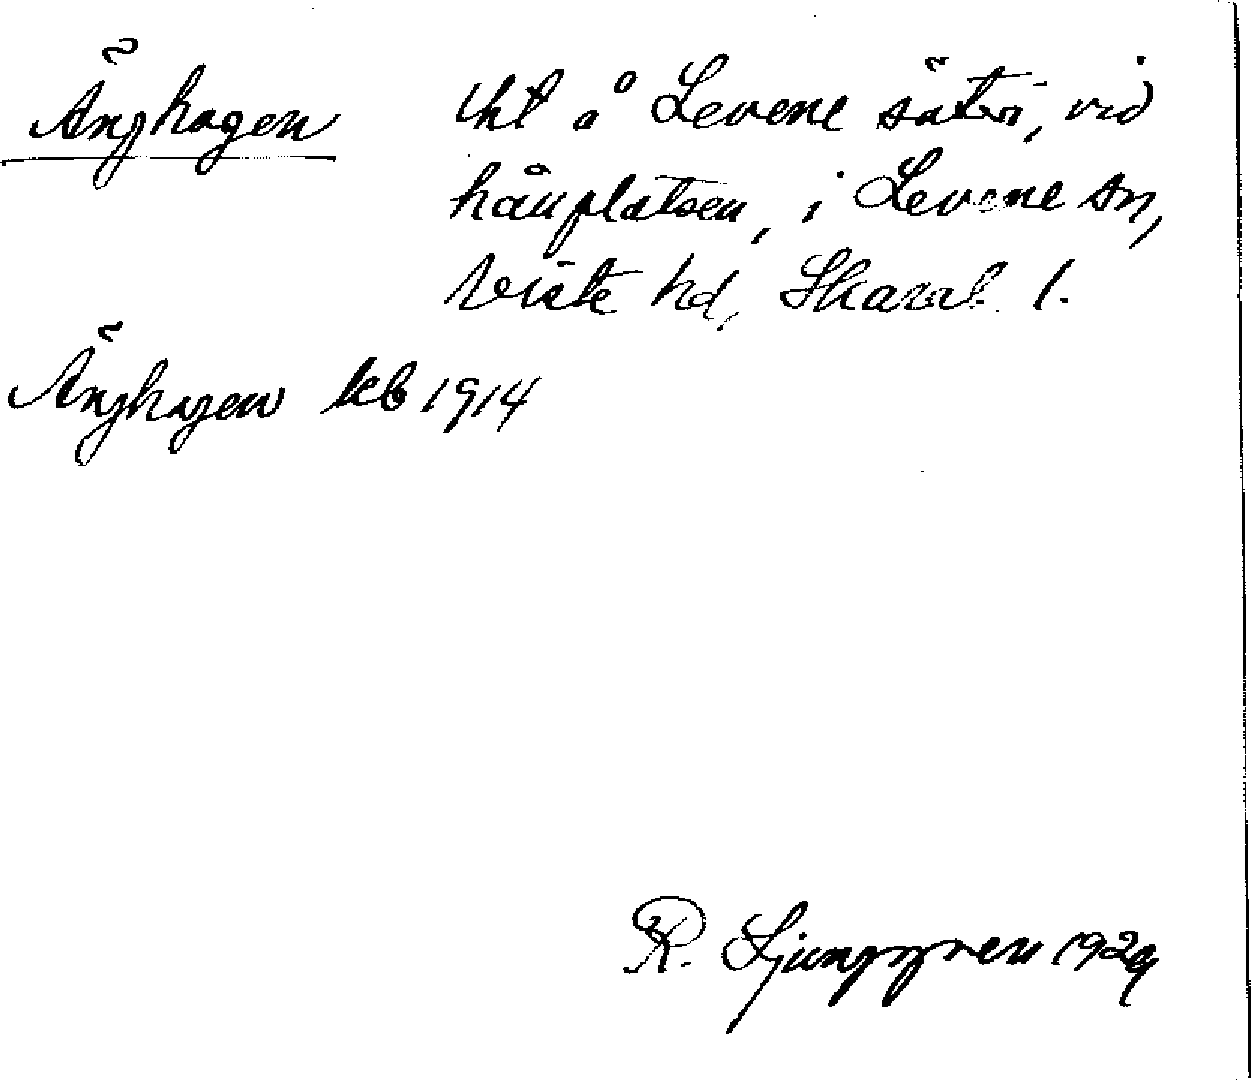 Änghagen tht å Levene säteri, vid
hållplatsen, i Levene sn,
Viste hd, Skarab. l.
Änghagen kb 1914
R. Ljunggren 1929